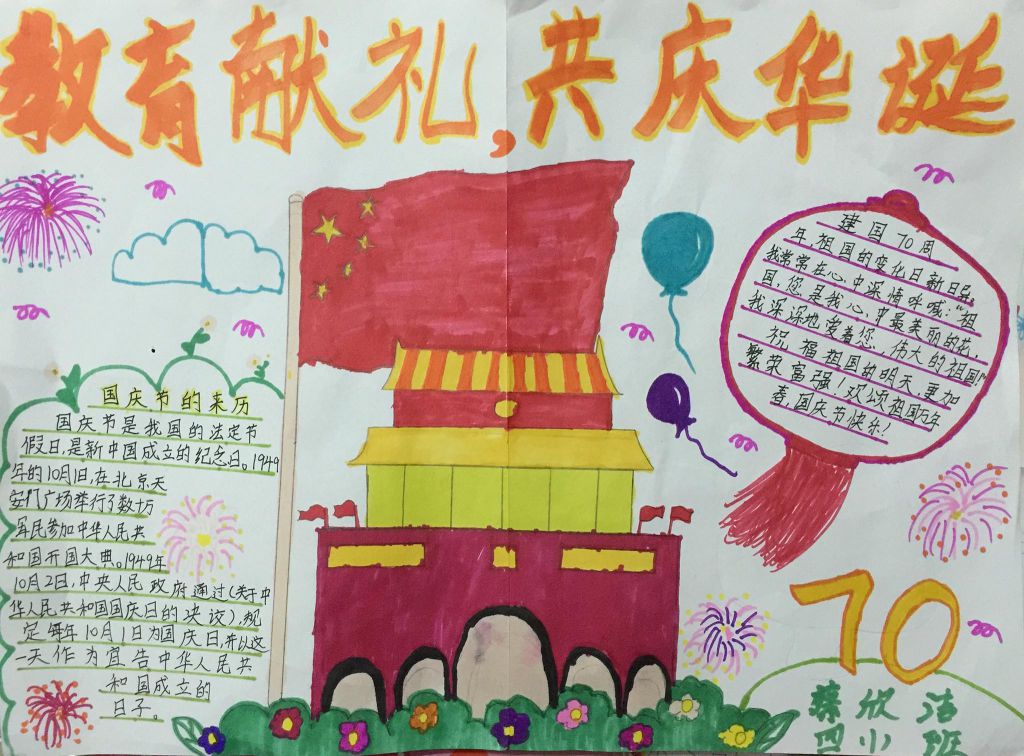 教育献礼,共庆华诞
国庆节的来历
国庆节是我国的法定节
假日,是新中国成立的纪念日。1949
年的10月1日,在北京天
安门广场举行了数十万
军民参加中华人民共
和国开国大典。1949年
10月2日,中央人民政府通过《关于中
华人民共和国国庆日的决议》,规
定每年10月1日为国庆日,并以这
一天作为宣告中华人民共
和国成立的
日子。
建国70周
年,祖国的变化日新日异。
我常常在心中深情呼喊:“祖
国,您是我心中最美丽的花,
我深深地爱着您,伟大的祖国!”
祝福祖国的明天,更加
繁荣富强!欢颂祖国万年
春,国庆节快乐!
70
蔡欣洁
四小班